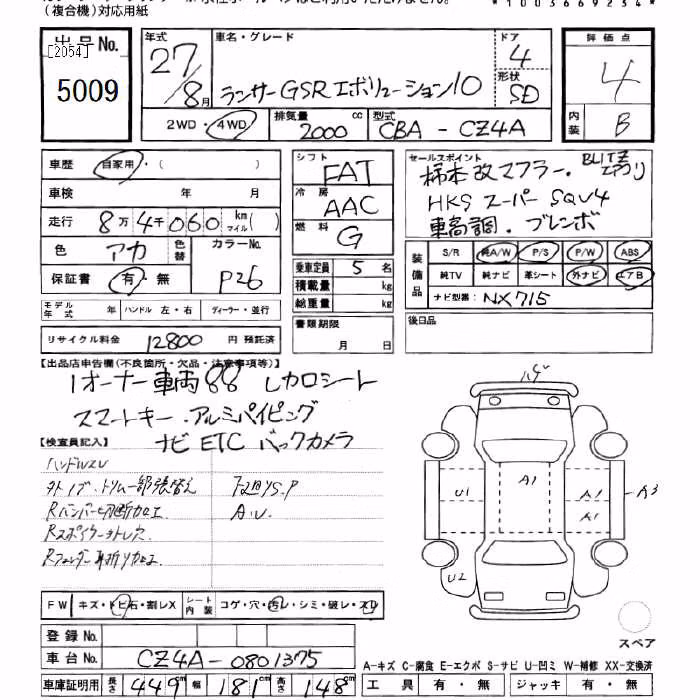 (複合機)対応用紙
*1003669254*
出品No. [2054] 5009
年式 27/8月
車名・グレード ランサーGSRエボリューション10
ドア 4
形状 SD
評価点 4
内装 B
2WD・4WD
排気量 2000cc
型式 CBA-CZ4A
車歴 自家用・( )
車検 年 月
走行 8万4千060km マイル( )
色 アカ 色替
カラーNo. P26
保証書 有・無
モデル年式 年 ハンドル 左・右 ディーラー・並行
リサイクル料金 12800 円 預託済
シフト FAT
冷房 AAC
燃料 G
乗車定員 5名
積載量 kg
総重量 kg
書類期限 月 日
セールスポイント
柿本改マフラー. BLITZエアクリ
HKS スーパーSQV4
車高調. ブレンボ
装備品 S/R 純A/W P/S P/W ABS
純TV 純ナビ 革シート 外ナビ エアB
ナビ型番: NX715
後日品
【出品店申告欄(不良箇所・欠品・注意事項等)】
1オーナー車両 レカロシート
スマートキー.アルミパイピング
ナビ ETC バックカメラ
【検査員記入】
ハンドルスレ
内トリム一部張替え
Rバンパー切断加工 A.U.
Rスポイラー外し穴
Rフェンダー耳折り加工
U1 A1 A1 A1 A3
U2
FW キズ・トビ石・割レX
シート内装 コゲ・穴・汚レ・シミ・破レ・スレ
スペア
登録No.
車台No. CZ4A-0801375
車庫証明用 長さ 449cm 幅 181cm 高さ 148cm
A-キズ C-腐食 E-エクボ S-サビ U-凹ミ W-補修 XX-交換済
工具 有・無 ジャッキ 有・無